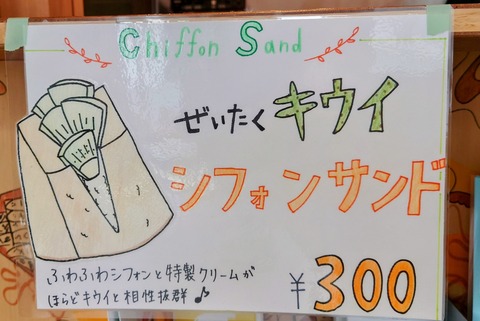 Chiffon Sand
ぜいたくキウイ
シフォンサンド
ふわふわシフォンと特製クリームが
ほらどキウイと相性抜群♪
¥300